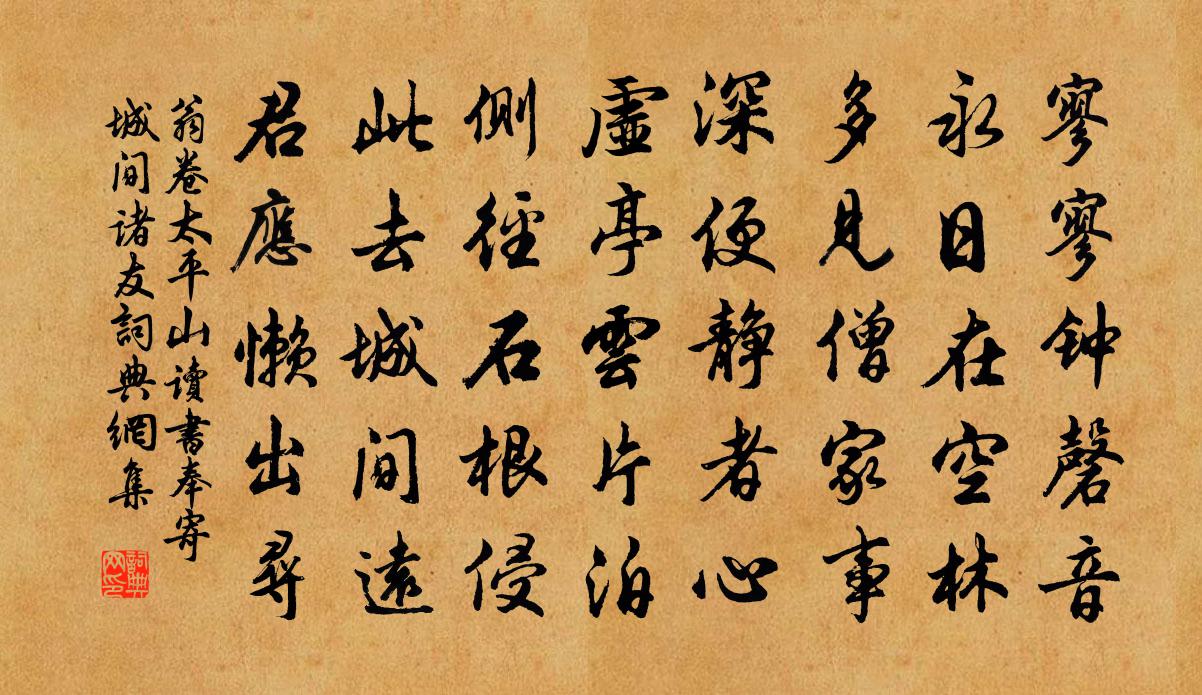 寥寥钟磬音
永日在空林
多見僧家事
深便静者心
虛亭雲片泊
側徑石根侵
此去城間遠
君應懶出尋
翁卷太平山讀書奉寄
城间諸友詞典網集
詞典网印